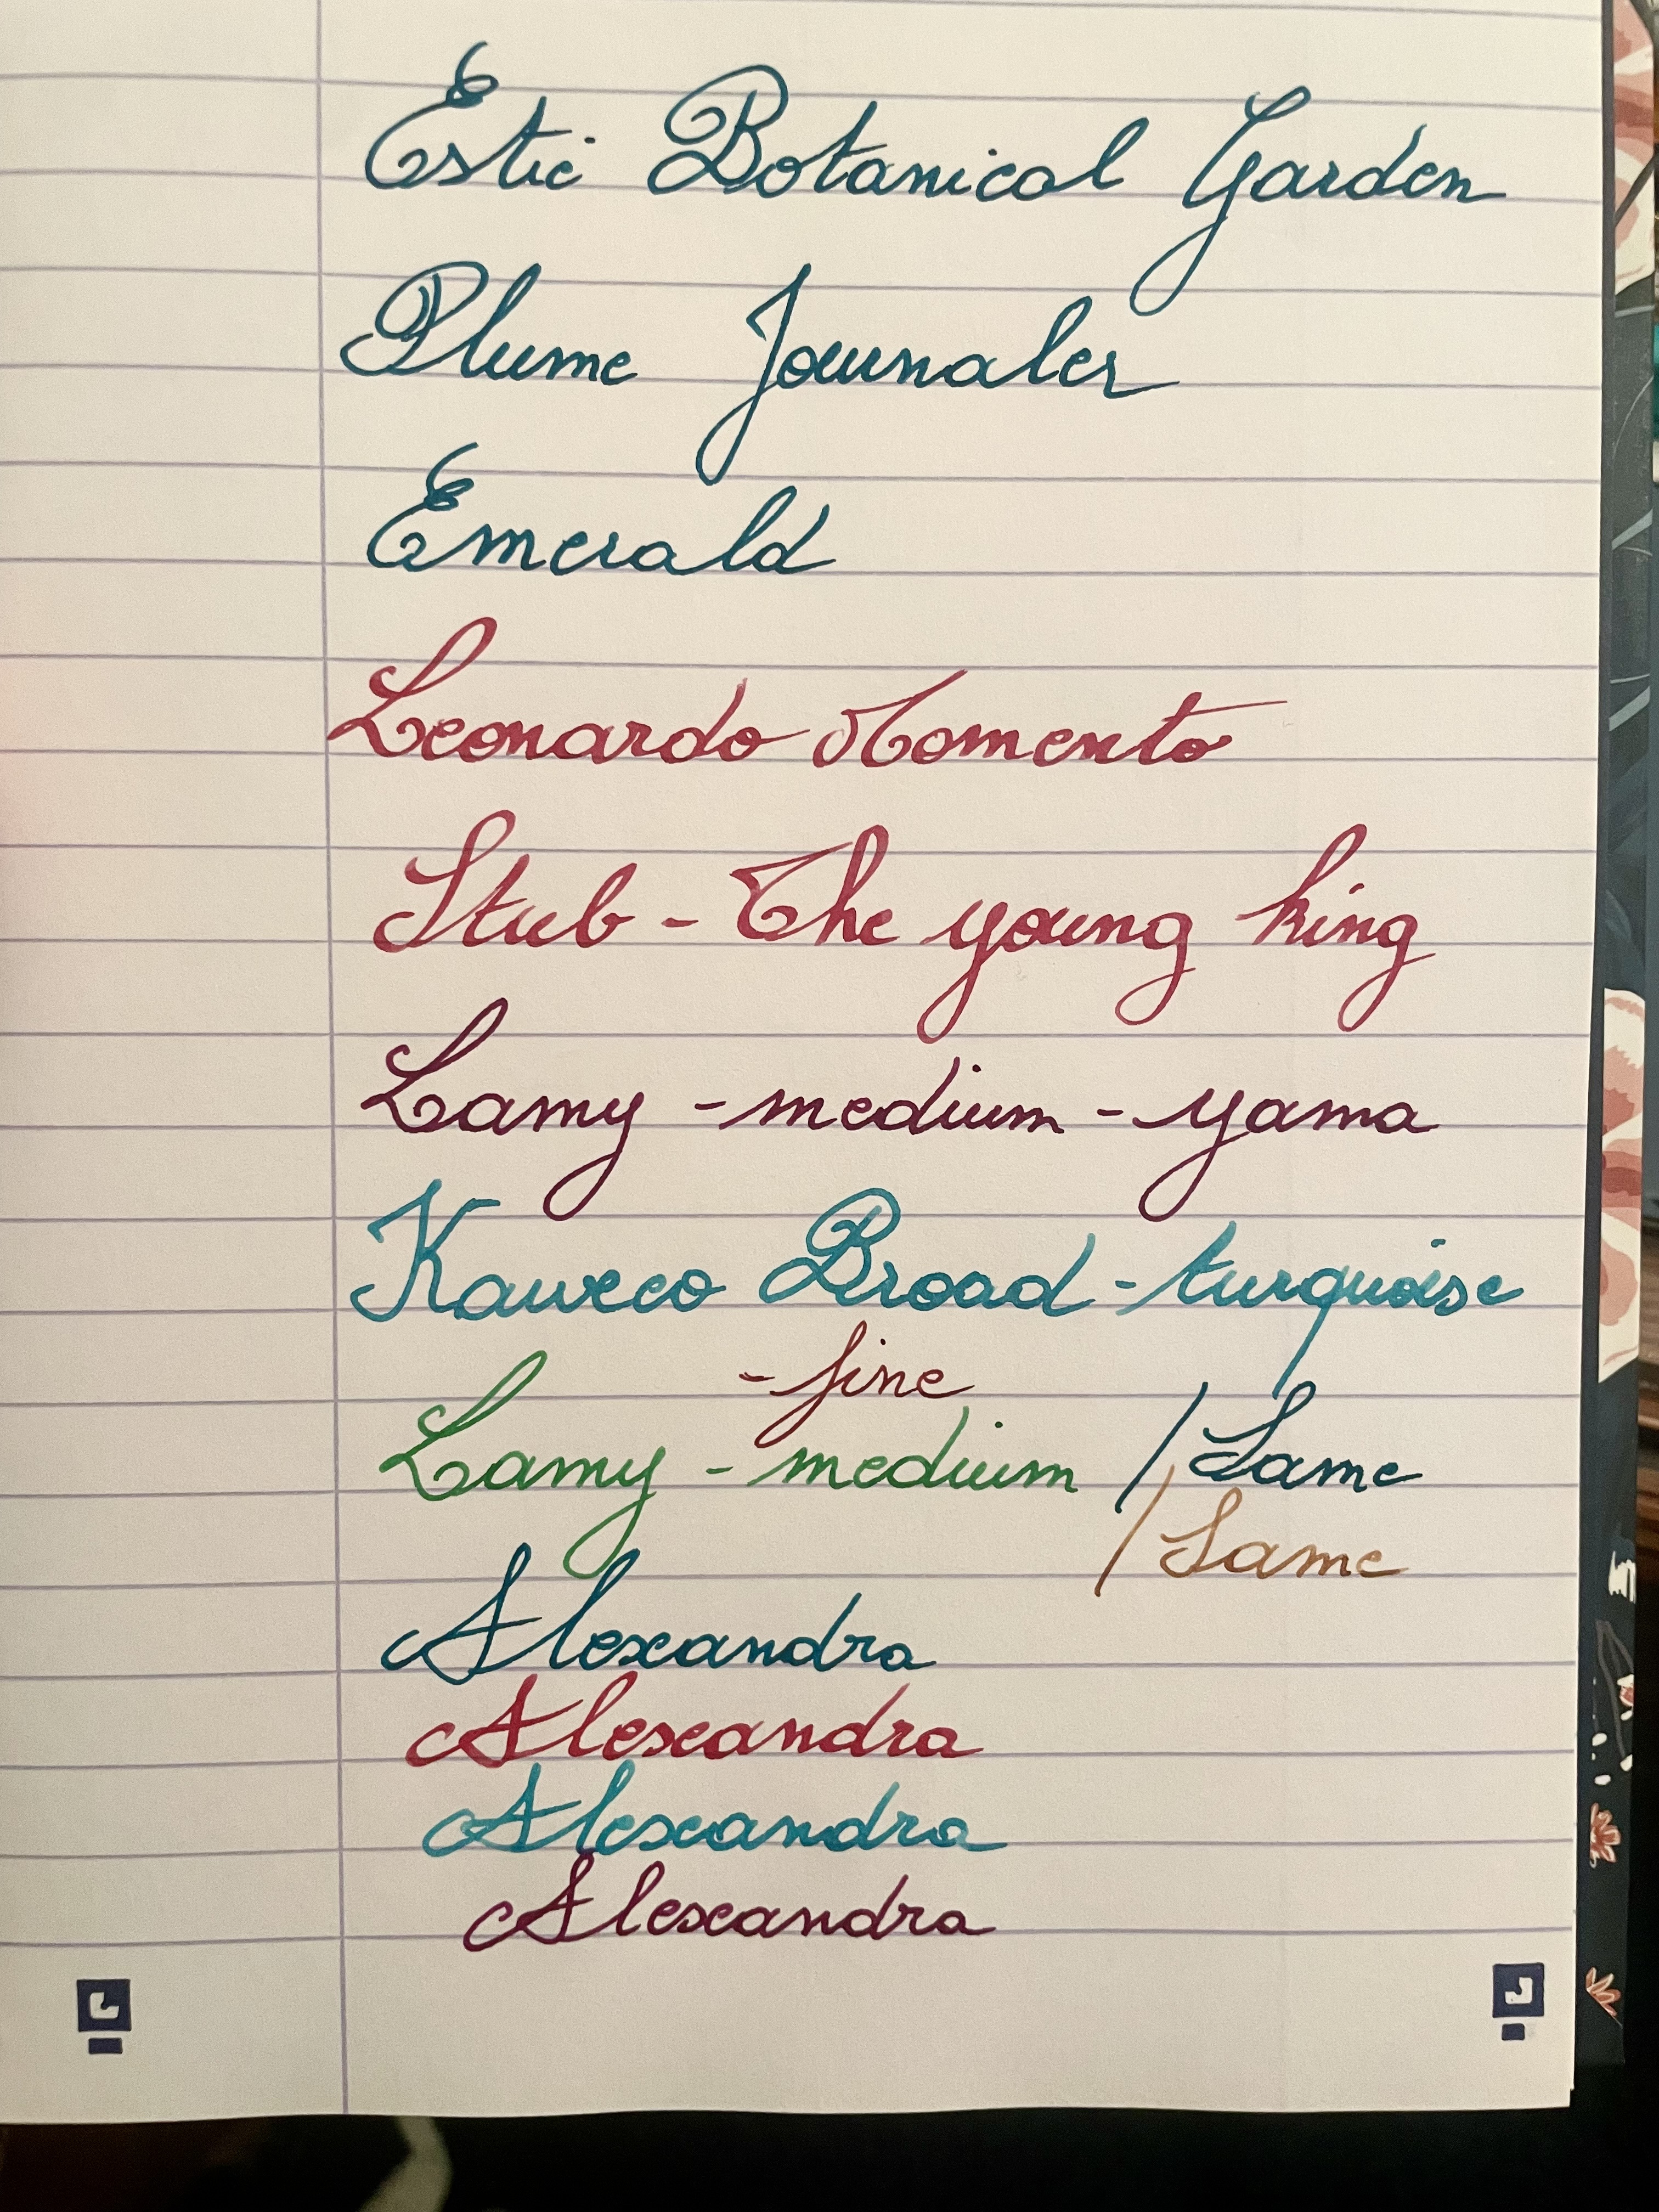 Estie Botanical Garden
Plume Journaler
Emerald
Leonardo Momento
Stub - The young king
Lamy - medium - yama
Kaweco Broad - turquoise
- fine
Lamy - medium / Same
/ Same
Alexandra
Alexandra
Alexandra
Alexandra